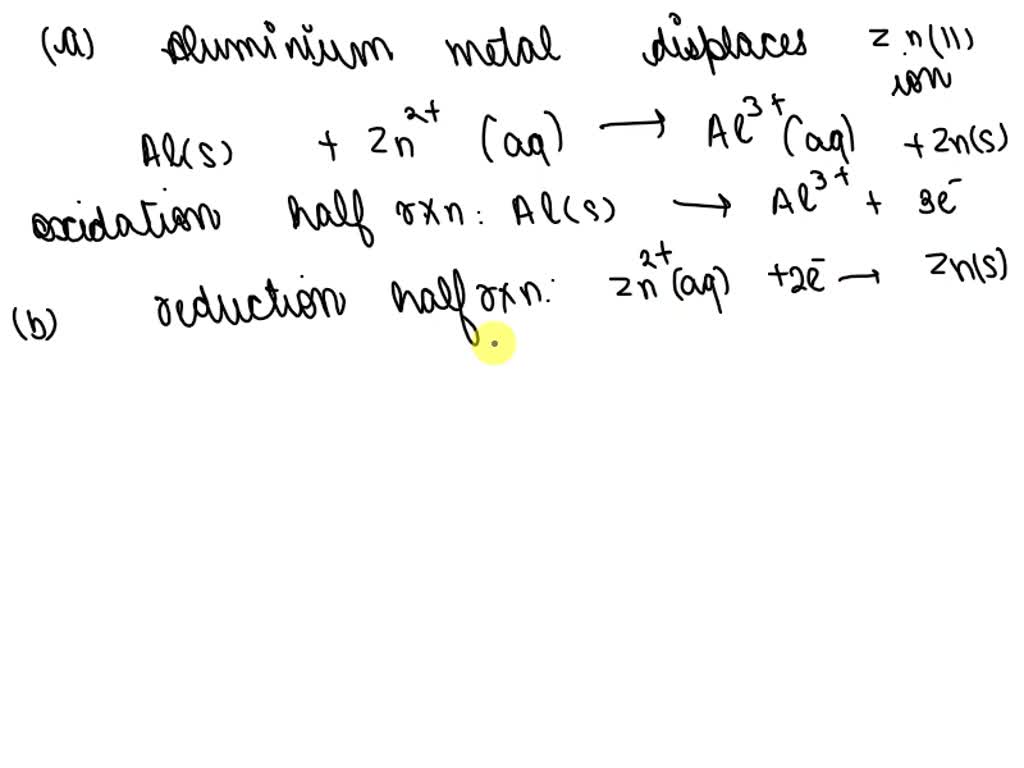 (a) Aluminium metal displaces Zn(II) ion
Al(s) + Zn²⁺ (aq) → Al³⁺ (aq) + Zn(s)
oxidation half rxn: Al(s) → Al³⁺ + 3e⁻
(b) reduction half rxn: Zn²⁺(aq) + 2e⁻ → Zn(s)